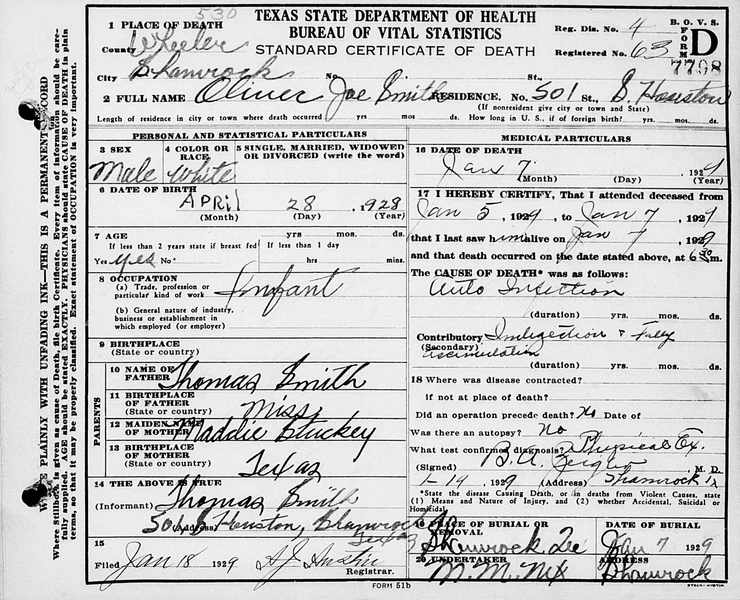 530
TEXAS STATE DEPARTMENT OF HEALTH
BUREAU OF VITAL STATISTICS
STANDARD CERTIFICATE OF DEATH
Reg. Dis. No. 4
Registered No. 63
B. O. V. S.
FORM D
7798
1 PLACE OF DEATH
County Wheeler
City Shamrock No. St.,
2 FULL NAME Oliver Joe Smith RESIDENCE. No. 501 St., S. Houston
(If nonresident give city or town and State)
Length of residence in city or town where death occurred yrs. mos. ds. How long in U. S., if of foreign birth? yrs. mos. ds.
PERSONAL AND STATISTICAL PARTICULARS
3 SEX Male
4 COLOR OR RACE White
5 SINGLE, MARRIED, WIDOWED OR DIVORCED (write the word)
6 DATE OF BIRTH
APRIL 28, 1928
(Month) (Day) (Year)
7 AGE yrs. mos. ds.
If less than 2 years state if breast fed If less than 1 day
Yes yes No* hrs mins.
8 OCCUPATION
(a) Trade, profession or particular kind of work Infant
(b) General nature of industry, business or establishment in which employed (or employer)
9 BIRTHPLACE
(State or country)
PARENTS
10 NAME OF FATHER Thomas Smith
11 BIRTHPLACE OF FATHER (State or country) Miss
12 MAIDEN NAME OF MOTHER Maddie Stuckey
13 BIRTHPLACE OF MOTHER (State or country) Texas
14 THE ABOVE IS TRUE
(Informant) Thomas Smith
(Address) 501 S Houston, Shamrock Texas
15
Filed Jan 18 1929 Austin
Registrar.
MEDICAL PARTICULARS
16 DATE OF DEATH
Jan 7. 1929
(Month) (Day) (Year)
17 I HEREBY CERTIFY, That I attended deceased from
Jan 5, 1929, to Jan 7, 1929
that I last saw him alive on Jan 7, 1929
and that death occurred on the date stated above, at 6 30 m.
The CAUSE OF DEATH* was as follows:
Auto Infection
(duration) yrs. mos. ds.
Contributory Indigestion &
(Secondary)
(duration) yrs. mos. ds.
18 Where was disease contracted?
if not at place of death?
Did an operation precede death? No Date of
Was there an autopsy? No
What test confirmed diagnosis? Physical Ex.
(Signed) B. A. Zeigler M. D.
1-14 1929 (Address) Shamrock Tx
*State the disease Causing Death, or in deaths from Violent Causes, state (1) Means and Nature of Injury, and (2) whether Accidental, Suicidal or Homicidal.
19 PLACE OF BURIAL OR REMOVAL Shamrock
DATE OF BURIAL Jan 7 1929
20 UNDERTAKER M. M. Nix
ADDRESS Shamrock
FORM 51b
WRITE PLAINLY WITH UNFADING INK—THIS IS A PERMANENT RECORD
Where Stillborn is given as cause of Death, file birth Certificate. Every item of information should be carefully supplied. AGE should be stated EXACTLY. PHYSICIANS should state CAUSE OF DEATH in plain terms, so that it may be properly classified. Exact statement of OCCUPATION is very important.